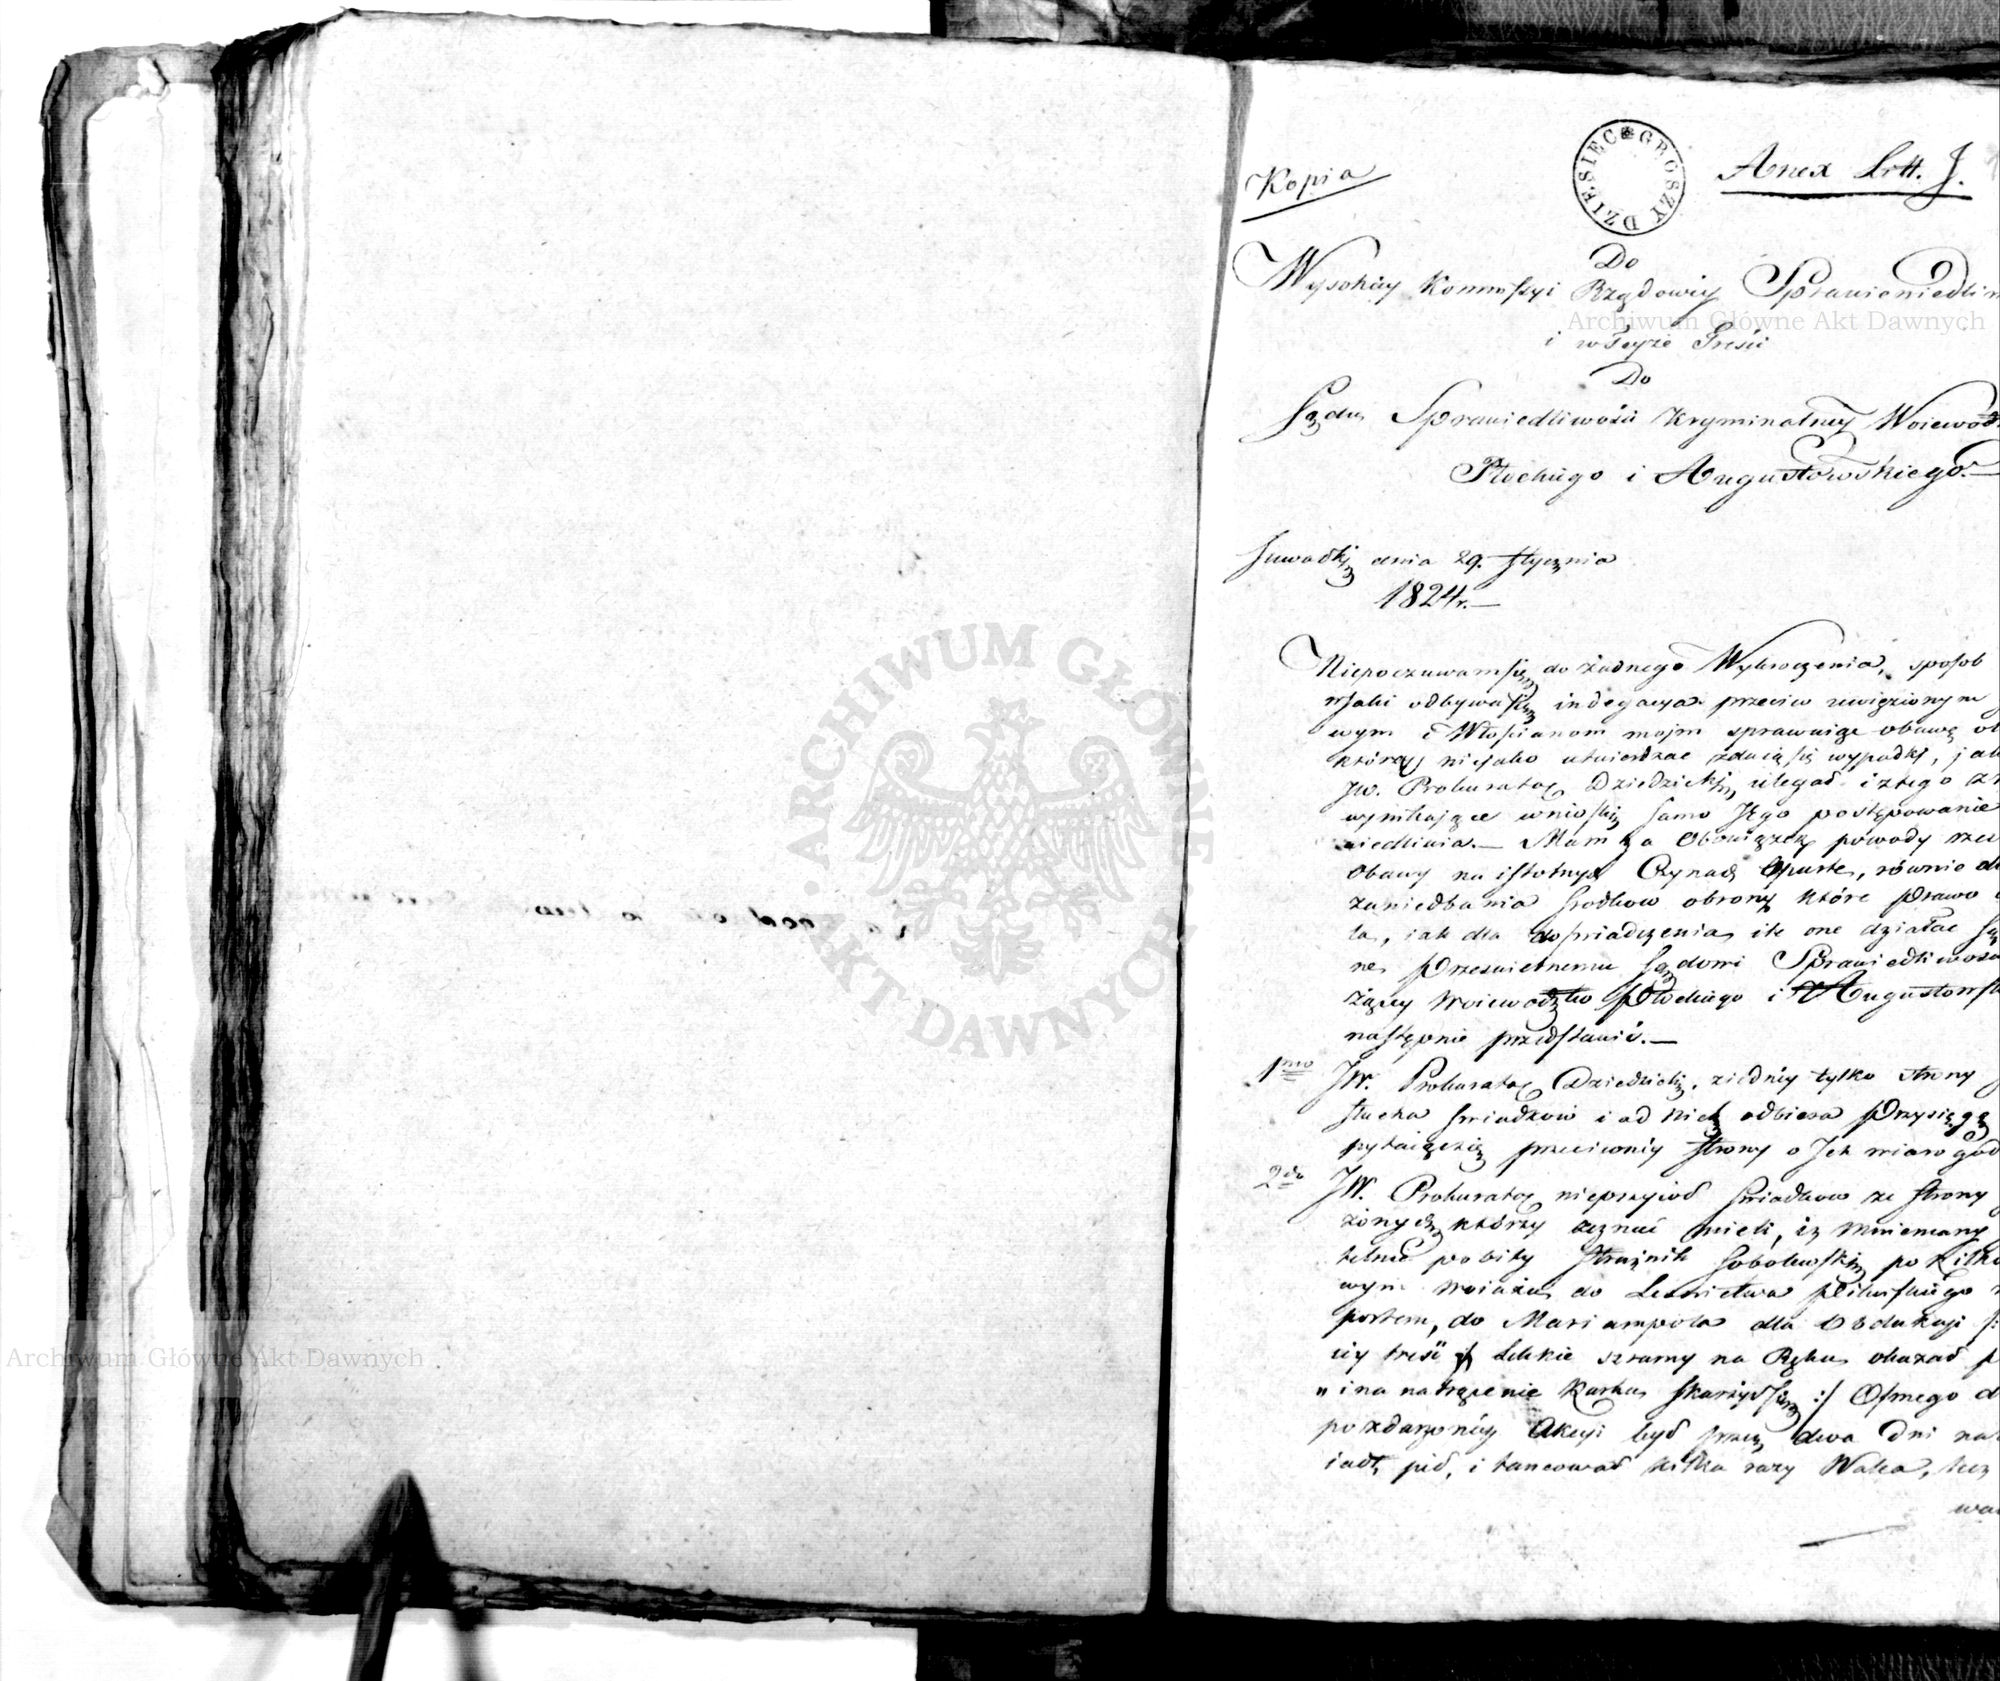 Kopia
DZIESIEC GROSZY
Anex Litt. J.
Do
Wysokiey Kommissyi Rządowey Sprawiedliw
Archiwum Główne Akt Dawnych
i w teyże treści
Do
Sądu Sprawiedliwości Kryminalney Woiewództ
Płockiego i Augustowskiego.—
Suwałki dnia 29. Stycznia
1824r.—
Niepoczuwam się do żadnego Wykroczenia, sposob
w jaki odbywa się indagacya przeciw uwięzionym
wym i Włościanom moim sprawuie obawę
którey niejako utwierdzać zdaią się wypadki,
JW. Prokurator Dziedzicki uległ i z tego
wynikające wnioski samo Jego postępowanie
Mam za Obowiązek powody
Obawy na istotnych Czynach Oparte, równie
zaniedbania srodkow obrony które Prawo
ta, iak dla doswiadczenia ile one działać są
ne, Przeswietnemu Sądowi Sprawiedliwosc
Woiewodztw Płockiego i Augustowsk
następnie przedstawić.—
1mo JW. Prokurator Dziedzicki, z iedney tylko strony
słucha swiadków i od Nich odbiera Przysięgę
pytaiąc się przeciwney strony o Ich wiarogod
2do JW. Prokurator nieprzyiął Swiadkow ze strony
żonych którzy zeznać mieli, iż mniemany
telnie pobity Strażnik Sobolewski po kilko
wym woiażu do Lesnictwa Pilwiskiego
portem, do Mariampola dla Obdukcyi
iey treść lekkie szramy na Ręku okazał
" i na natrącenie Karku skarżył się :/ Osmego
po zdarzoney Akcyi był przez dwa Dni na
iadł, pił, i tancował kilka razy Walca, lecz
ARCHIWUM GŁÓWNE
AKT DAWNYCH
Archiwum Główne Akt Dawnych